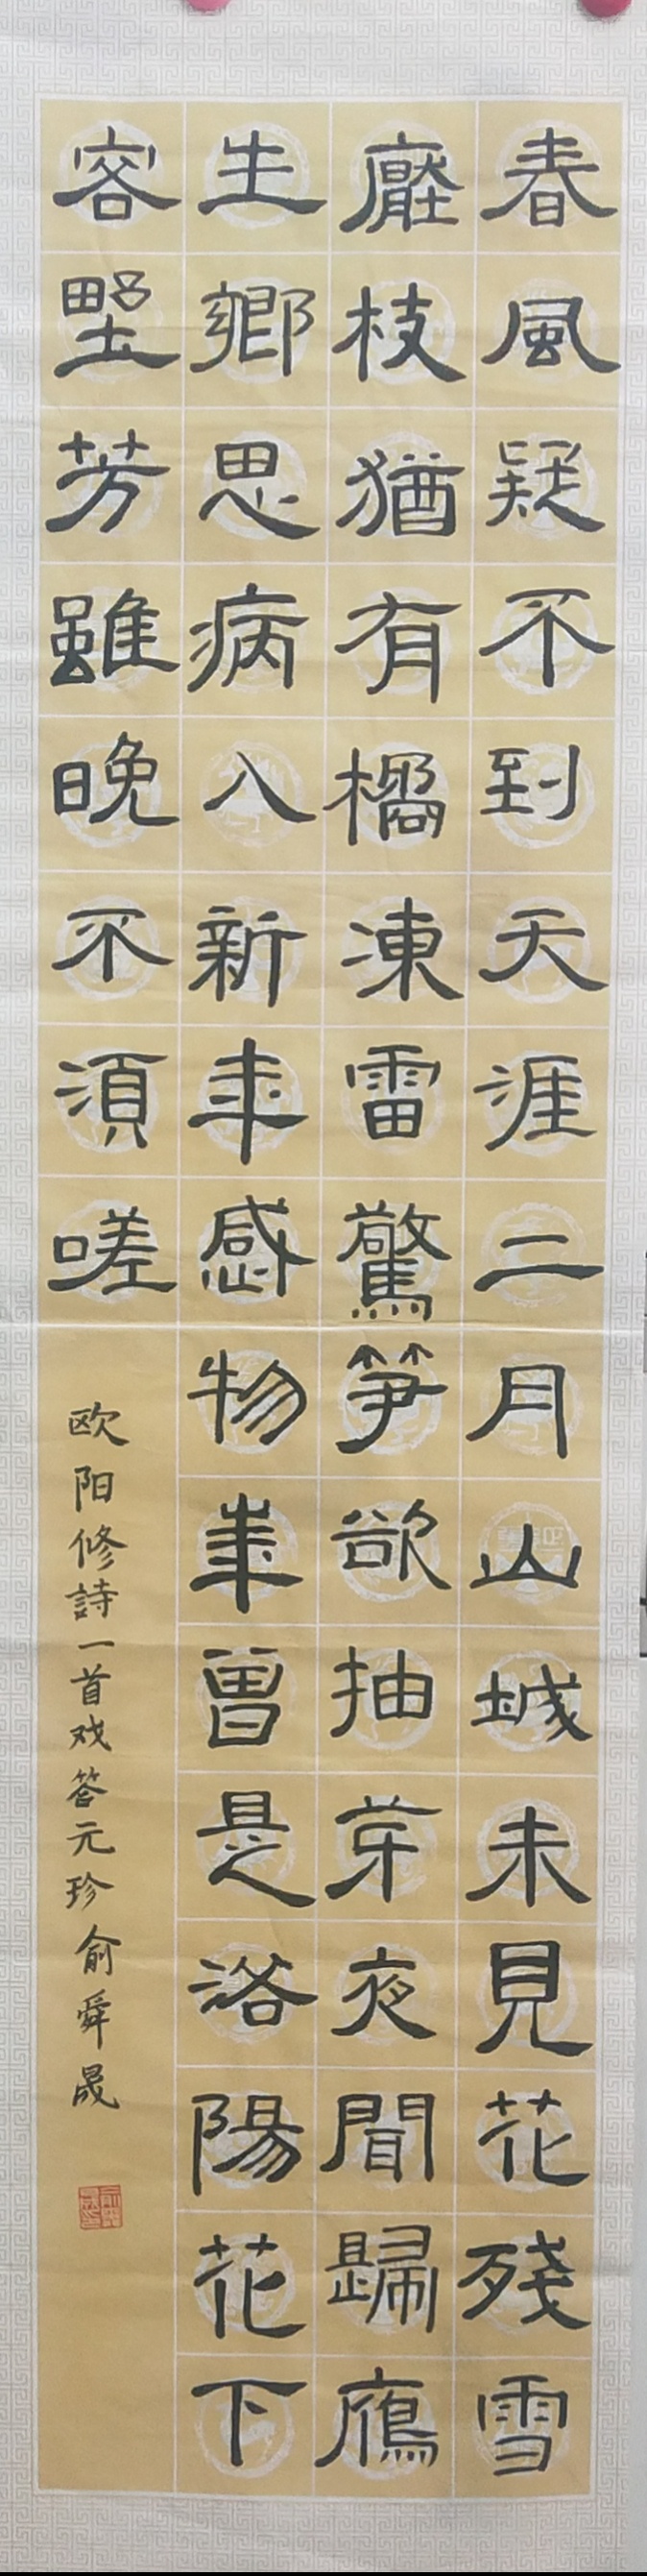 春風疑不到天涯二月山城未見花殘雪
壓枝猶有橘凍雷驚笋欲抽芽夜聞歸鴈
生鄉思病入新年感物華曾是洛陽花下
客野芳雖晚不湏嗟
欧阳修詩一首戏答元珍 俞舜晟